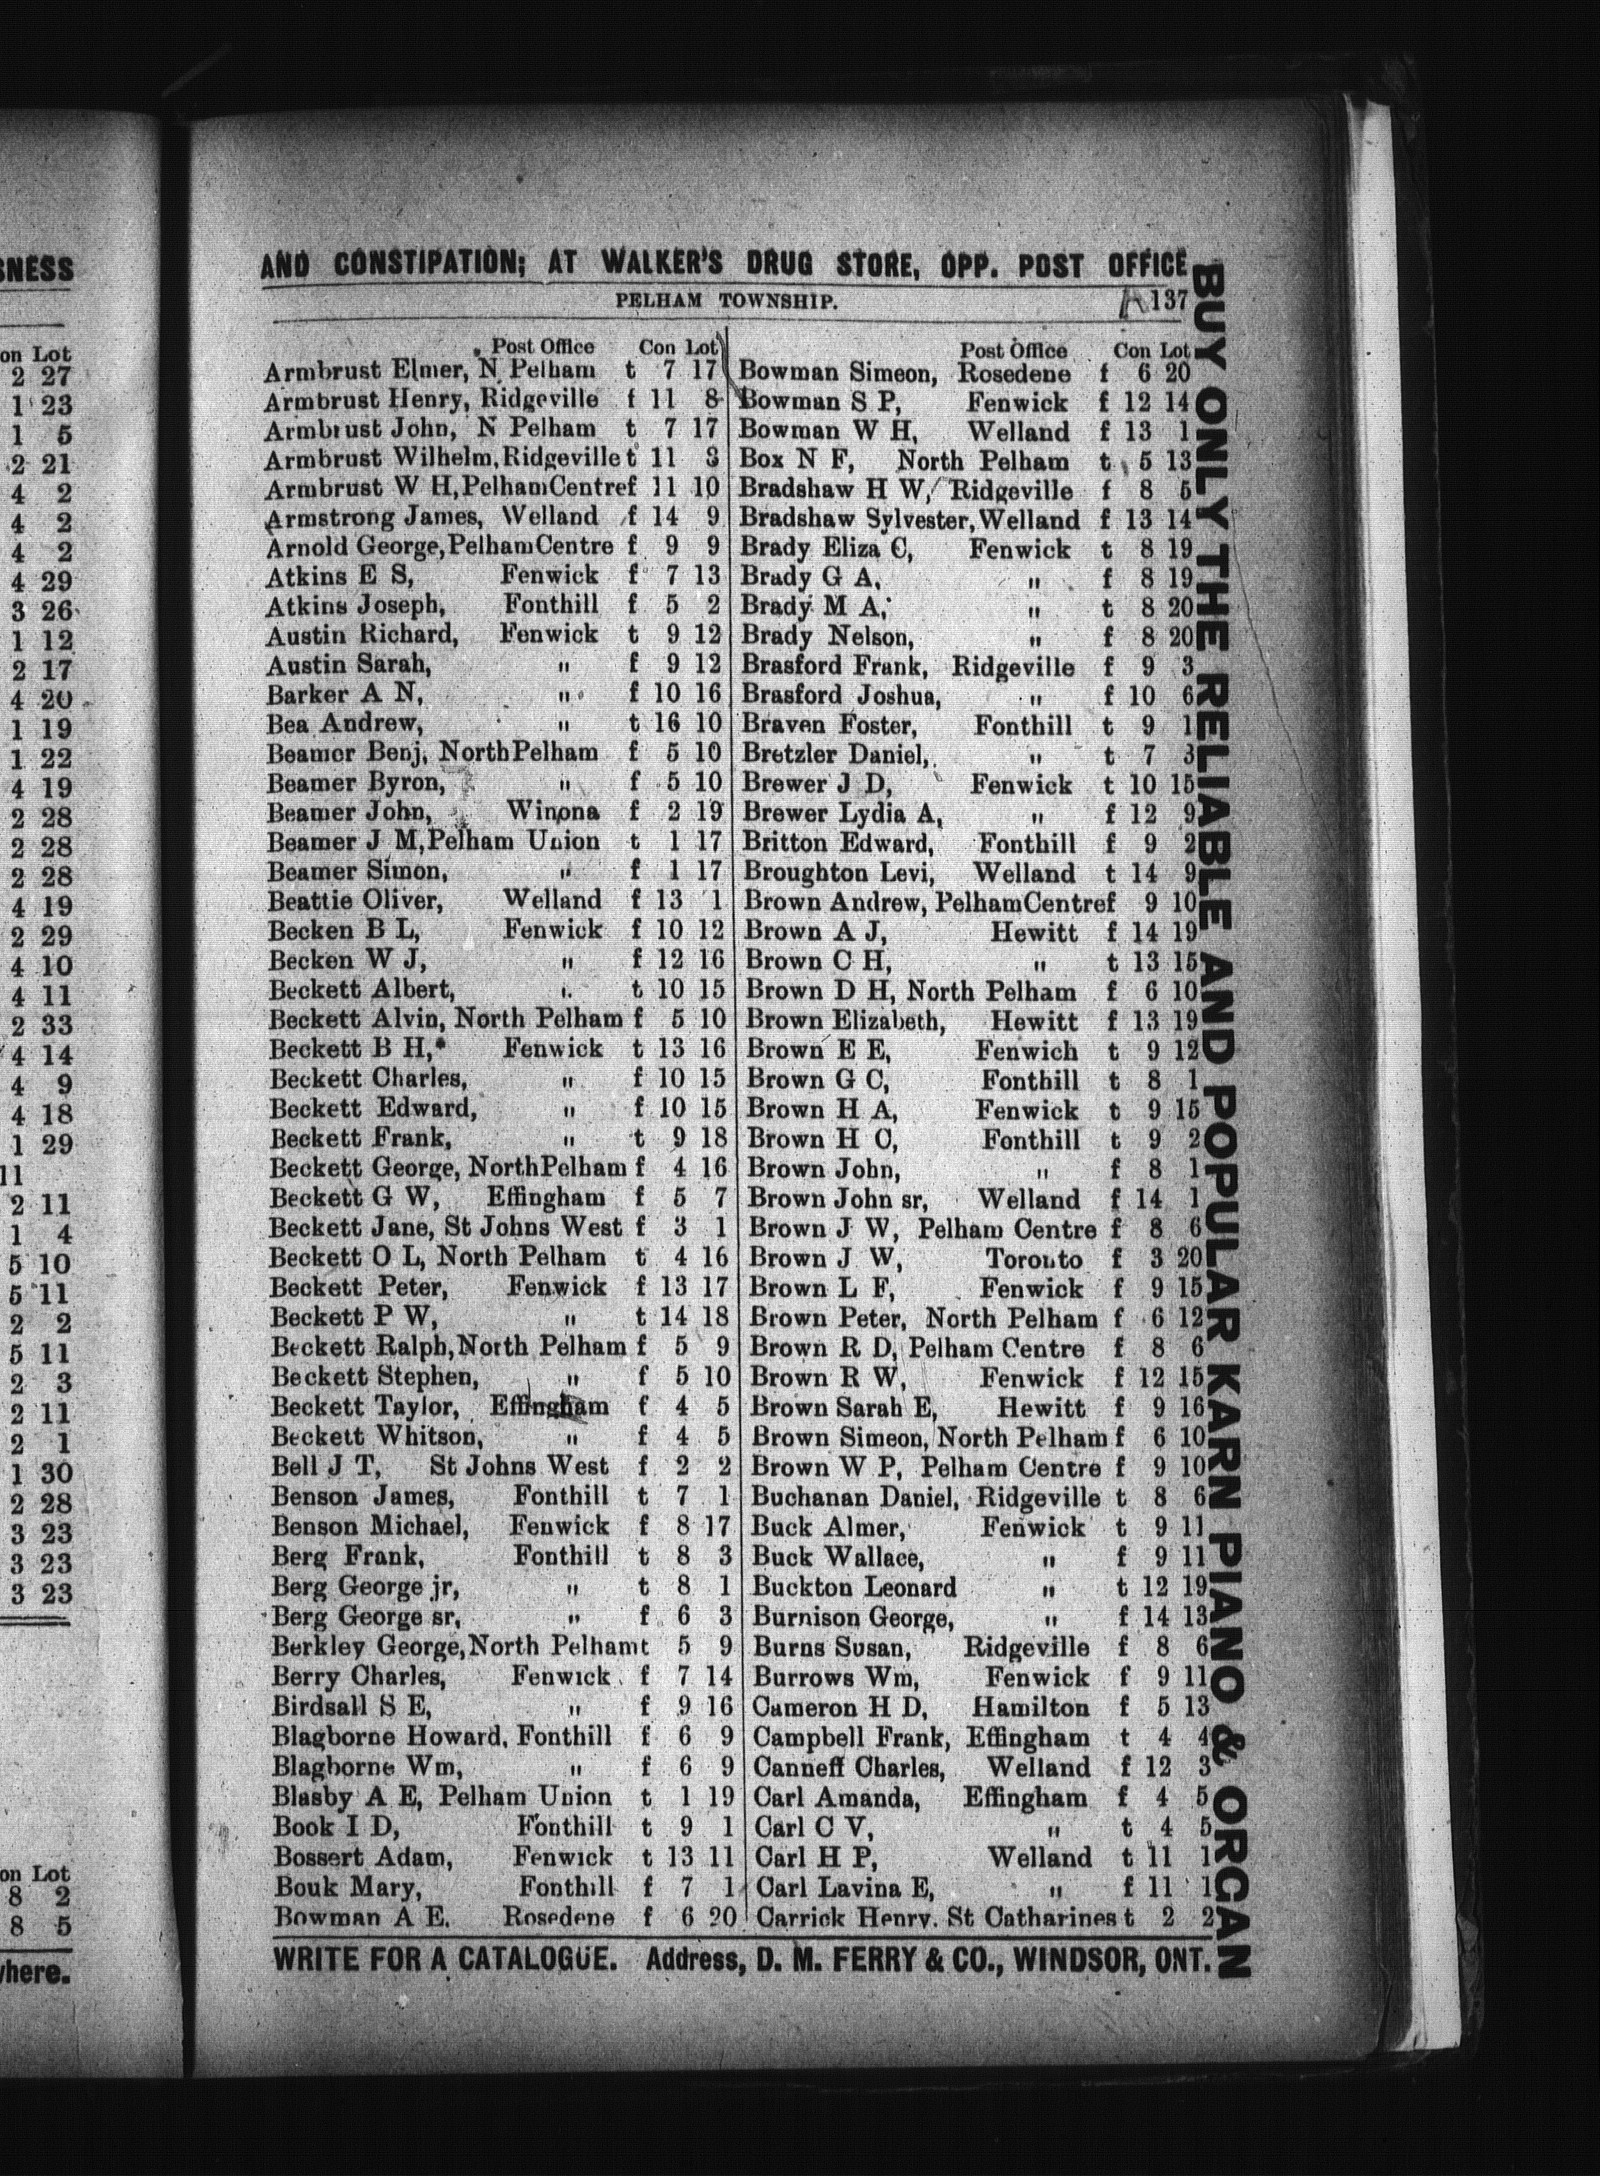 NESS
on Lot
2 27
1 23
1 5
2 21
4 2
4 2
4 2
4 29
3 26
1 12
2 17
4 20
1 19
1 22
4 19
2 28
2 28
2 28
4 19
2 29
4 10
4 11
2 33
4 14
4 9
4 18
1 29
11
2 11
1 4
5 10
5 11
2 2
5 11
2 3
2 11
2 1
1 30
2 28
3 23
3 23
3 23
on Lot
8 2
8 5
here.
AND CONSTIPATION; AT WALKER'S DRUG STORE, OPP. POST OFFICE
PELHAM TOWNSHIP. A 137
Post Office Con Lot
Armbrust Elmer, N Pelham t 7 17
Armbrust Henry, Ridgeville f 11 8
Armbrust John, N Pelham t 7 17
Armbrust Wilhelm, Ridgeville t 11 3
Armbrust W H, Pelham Centre f 11 10
Armstrong James, Welland f 14 9
Arnold George, Pelham Centre f 9 9
Atkins E S, Fenwick f 7 13
Atkins Joseph, Fonthill f 5 2
Austin Richard, Fenwick t 9 12
Austin Sarah, " f 9 12
Barker A N, " f 10 16
Bea Andrew, " t 16 10
Beamer Benj, North Pelham f 5 10
Beamer Byron, " f 5 10
Beamer John, Winona f 2 19
Beamer J M, Pelham Union t 1 17
Beamer Simon, " f 1 17
Beattie Oliver, Welland f 13 1
Becken B L, Fenwick f 10 12
Becken W J, " f 12 16
Beckett Albert, " t 10 15
Beckett Alvin, North Pelham f 5 10
Beckett B H,* Fenwick t 13 16
Beckett Charles, " f 10 15
Beckett Edward, " f 10 15
Beckett Frank, " t 9 18
Beckett George, North Pelham f 4 16
Beckett G W, Effingham f 5 7
Beckett Jane, St Johns West f 3 1
Beckett O L, North Pelham t 4 16
Beckett Peter, Fenwick f 13 17
Beckett P W, " t 14 18
Beckett Ralph, North Pelham f 5 9
Beckett Stephen, " f 5 10
Beckett Taylor, Effingham f 4 5
Beckett Whitson, " f 4 5
Bell J T, St Johns West f 2 2
Benson James, Fonthill t 7 1
Benson Michael, Fenwick f 8 17
Berg Frank, Fonthill t 8 3
Berg George jr, " t 8 1
Berg George sr, " f 6 3
Berkley George, North Pelham t 5 9
Berry Charles, Fenwick f 7 14
Birdsall S E, " f 9 16
Blagborne Howard, Fonthill f 6 9
Blagborne Wm, " f 6 9
Blasby A E, Pelham Union t 1 19
Book I D, Fonthill t 9 1
Bossert Adam, Fenwick t 13 11
Bouk Mary, Fonthill f 7 1
Bowman A E, Rosedene f 6 20
Post Office Con Lot
Bowman Simeon, Rosedene f 6 20
Bowman S P, Fenwick f 12 14
Bowman W H, Welland f 13 1
Box N F, North Pelham t 5 13
Bradshaw H W, Ridgeville f 8 5
Bradshaw Sylvester, Welland f 13 14
Brady Eliza C, Fenwick t 8 19
Brady G A, " f 8 19
Brady M A, " t 8 20
Brady Nelson, " f 8 20
Brasford Frank, Ridgeville f 9 3
Brasford Joshua, " f 10 6
Braven Foster, Fonthill t 9 1
Bretzler Daniel, " t 7 3
Brewer J D, Fenwick t 10 15
Brewer Lydia A, " f 12 9
Britton Edward, Fonthill f 9 2
Broughton Levi, Welland t 14 9
Brown Andrew, Pelham Centre f 9 10
Brown A J, Hewitt f 14 19
Brown C H, " t 13 15
Brown D H, North Pelham f 6 10
Brown Elizabeth, Hewitt f 13 19
Brown E E, Fenwich t 9 12
Brown G C, Fonthill t 8 1
Brown H A, Fenwick t 9 15
Brown H C, Fonthill t 9 2
Brown John, " f 8 1
Brown John sr, Welland f 14 1
Brown J W, Pelham Centre f 8 6
Brown J W, Toronto f 3 20
Brown L F, Fenwick f 9 15
Brown Peter, North Pelham f 6 12
Brown R D, Pelham Centre f 8 6
Brown R W, Fenwick f 12 15
Brown Sarah E, Hewitt f 9 16
Brown Simeon, North Pelham f 6 10
Brown W P, Pelham Centre f 9 10
Buchanan Daniel, Ridgeville t 8 6
Buck Almer, Fenwick t 9 11
Buck Wallace, " f 9 11
Buckton Leonard " t 12 19
Burnison George, " f 14 13
Burns Susan, Ridgeville f 8 6
Burrows Wm, Fenwick f 9 11
Cameron H D, Hamilton f 5 13
Campbell Frank, Effingham t 4 4
Canneff Charles, Welland f 12 3
Carl Amanda, Effingham f 4 5
Carl C V, " t 4 5
Carl H P, Welland t 11 1
Carl Lavina E, " f 11 1
Carrick Henry, St Catharines t 2 2
WRITE FOR A CATALOGUE. Address, D. M. FERRY & CO., WINDSOR, ONT.
BUY ONLY THE RELIABLE AND POPULAR KARN PIANO & ORGAN